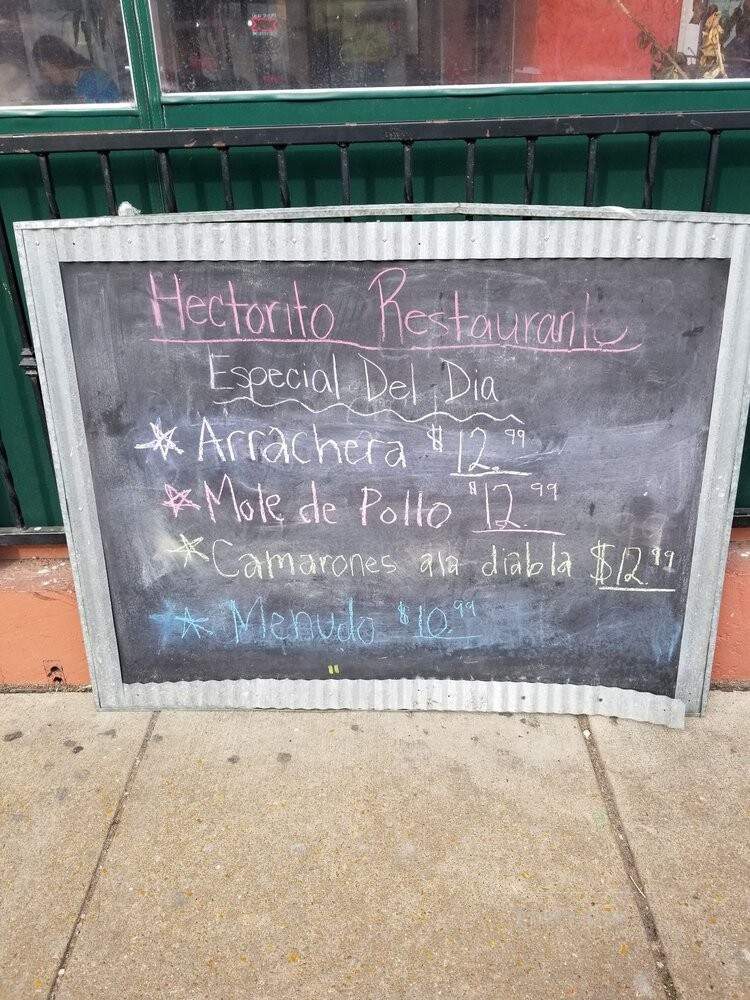 Hectorito Restaurante
Especial Del Dia
Arrachera $12.99
Mole de Pollo $12.99
Camarones ala diabla $12.99
Menudo $10.99